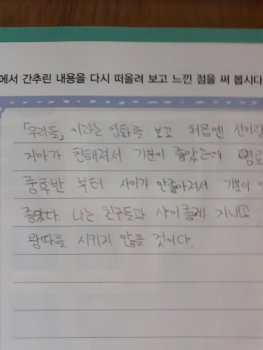 에서 간추린 내용을 다시 떠올려 보고 느낀 점을 써 봅시다
「우리들」 이라는 영화를 보고 처음엔 선이랑
지아가 친해져서 기분이 좋았는데 영화
중후반 부터 사이가 안좋아져서 기분이 안
좋았다. 나는 친구들과 사이좋게 지내고
왕따를 시키지 않을 것이다.